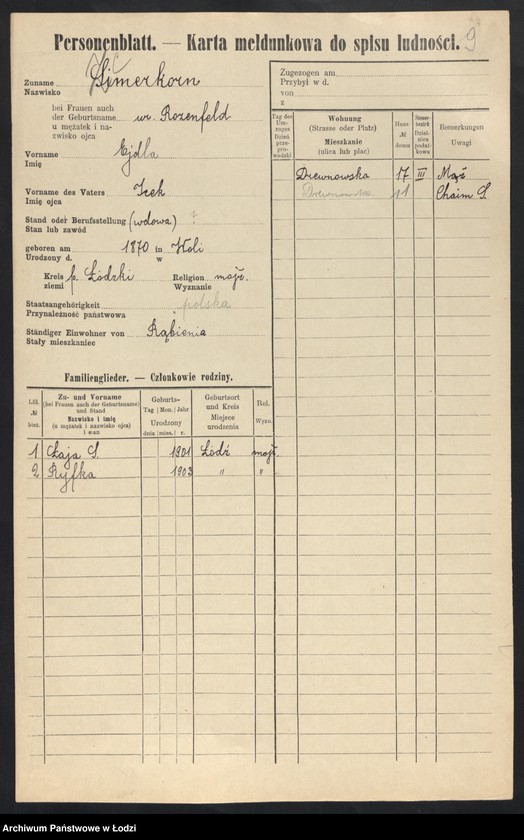 Personenblatt. — Karta meldunkowa do spisu ludności. 9
Zuname
Nazwisko Simerkorn
bei Frauen auch
der Geburtsname
u mężatek i na-
zwisko ojca ur. Rozenfeld
Vorname
Imię Ejdla
Vorname des Vaters
Imię ojca Icek
Stand oder Berufsstellung
Stan lub zawód (wdowa) ?
geboren am 1870 in Woli
Urodzony d. w
Kreis
ziemi p. Łódzki Religion
Wyznanie mojż.
Staatsangehörigkeit
Przynależność państwowa polska
Ständiger Einwohner von
Stały mieszkaniec Rąbienia
Zugezogen am
Przybył w d.
von
z
Tag des Um-zuges Dzień prze-pro-wadzki
Wohnung (Strasse oder Platz) Mieszkanie (ulica lub plac)
Haus № domu
Steuer-bezirk Dziel-nica podat-kowa
Bemerkungen Uwagi
Drewnowska 17 III Mąż
Drewnowska 11 Chaim S.
Familienglieder. — Członkowie rodziny.
Lfd. № bież.
Zu- und Vorname (bei Frauen auch der Geburtsname) und Stand Nazwisko i imię (u mężatek i nazwisko ojca) i stan
Geburts- Tag Mon. Jahr Urodzony dnia mies. r.
Geburtsort und Kreis Miejsce urodzenia
Rel. Wyzn.
1 Łaja S. 1901 Łódź mojż.
2 Ryfka 1903 " "
Archiwum Państwowe w Łodzi